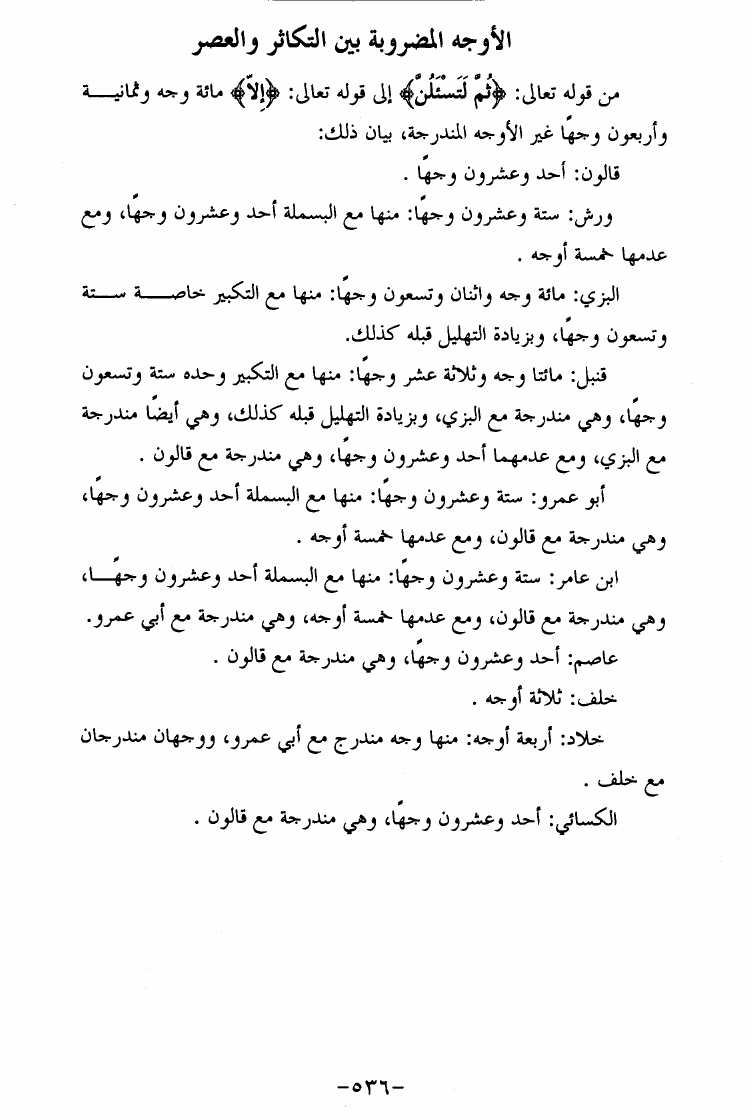 الأوجه المضروبة بين التكاثر والعصر
من قوله تعالى: ﴿ثُمَّ لَتَسْئَلُنَّ﴾ إلى قوله تعالى: ﴿إِلاَّ﴾ مائة وجه وثمانيـــة
وأربعون وجهًا غير الأوجه المندرجة، بيان ذلك:
قالون: أحد وعشرون وجهًا .
ورش: ستة وعشرون وجهًا: منها مع البسملة أحد وعشرون وجهًا، ومع
عدمها خمسة أوجه .
البزي: مائة وجه واثنان وتسعون وجهًا: منها مع التكبير خاصـــة ســـتة
وتسعون وجهًا، وبزيادة التهليل قبله كذلك.
قنبل: مائتا وجه وثلاثة عشر وجهًا: منها مع التكبير وحده ستة وتسعون
وجهًا، وهي مندرجة مع البزي، وبزيادة التهليل قبله كذلك، وهي أيضًا مندرجة
مع البزي، ومع عدمهما أحد وعشرون وجهًا، وهي مندرجة مع قالون .
أبو عمرو: ستة وعشرون وجهًا: منها مع البسملة أحد وعشرون وجهًا،
وهي مندرجة مع قالون، ومع عدمها خمسة أوجه .
ابن عامر: ستة وعشرون وجهًا: منها مع البسملة أحد وعشرون وجهًـــا،
وهي مندرجة مع قالون، ومع عدمها خمسة أوجه، وهي مندرجة مع أبي عمرو.
عاصم: أحد وعشرون وجهًا، وهي مندرجة مع قالون .
خلف: ثلاثة أوجه .
خلاد: أربعة أوجه: منها وجه مندرج مع أبي عمرو، ووجهان مندرجان
مع خلف .
الكسائي: أحد وعشرون وجهًا، وهي مندرجة مع قالون .
-٥٣٦-